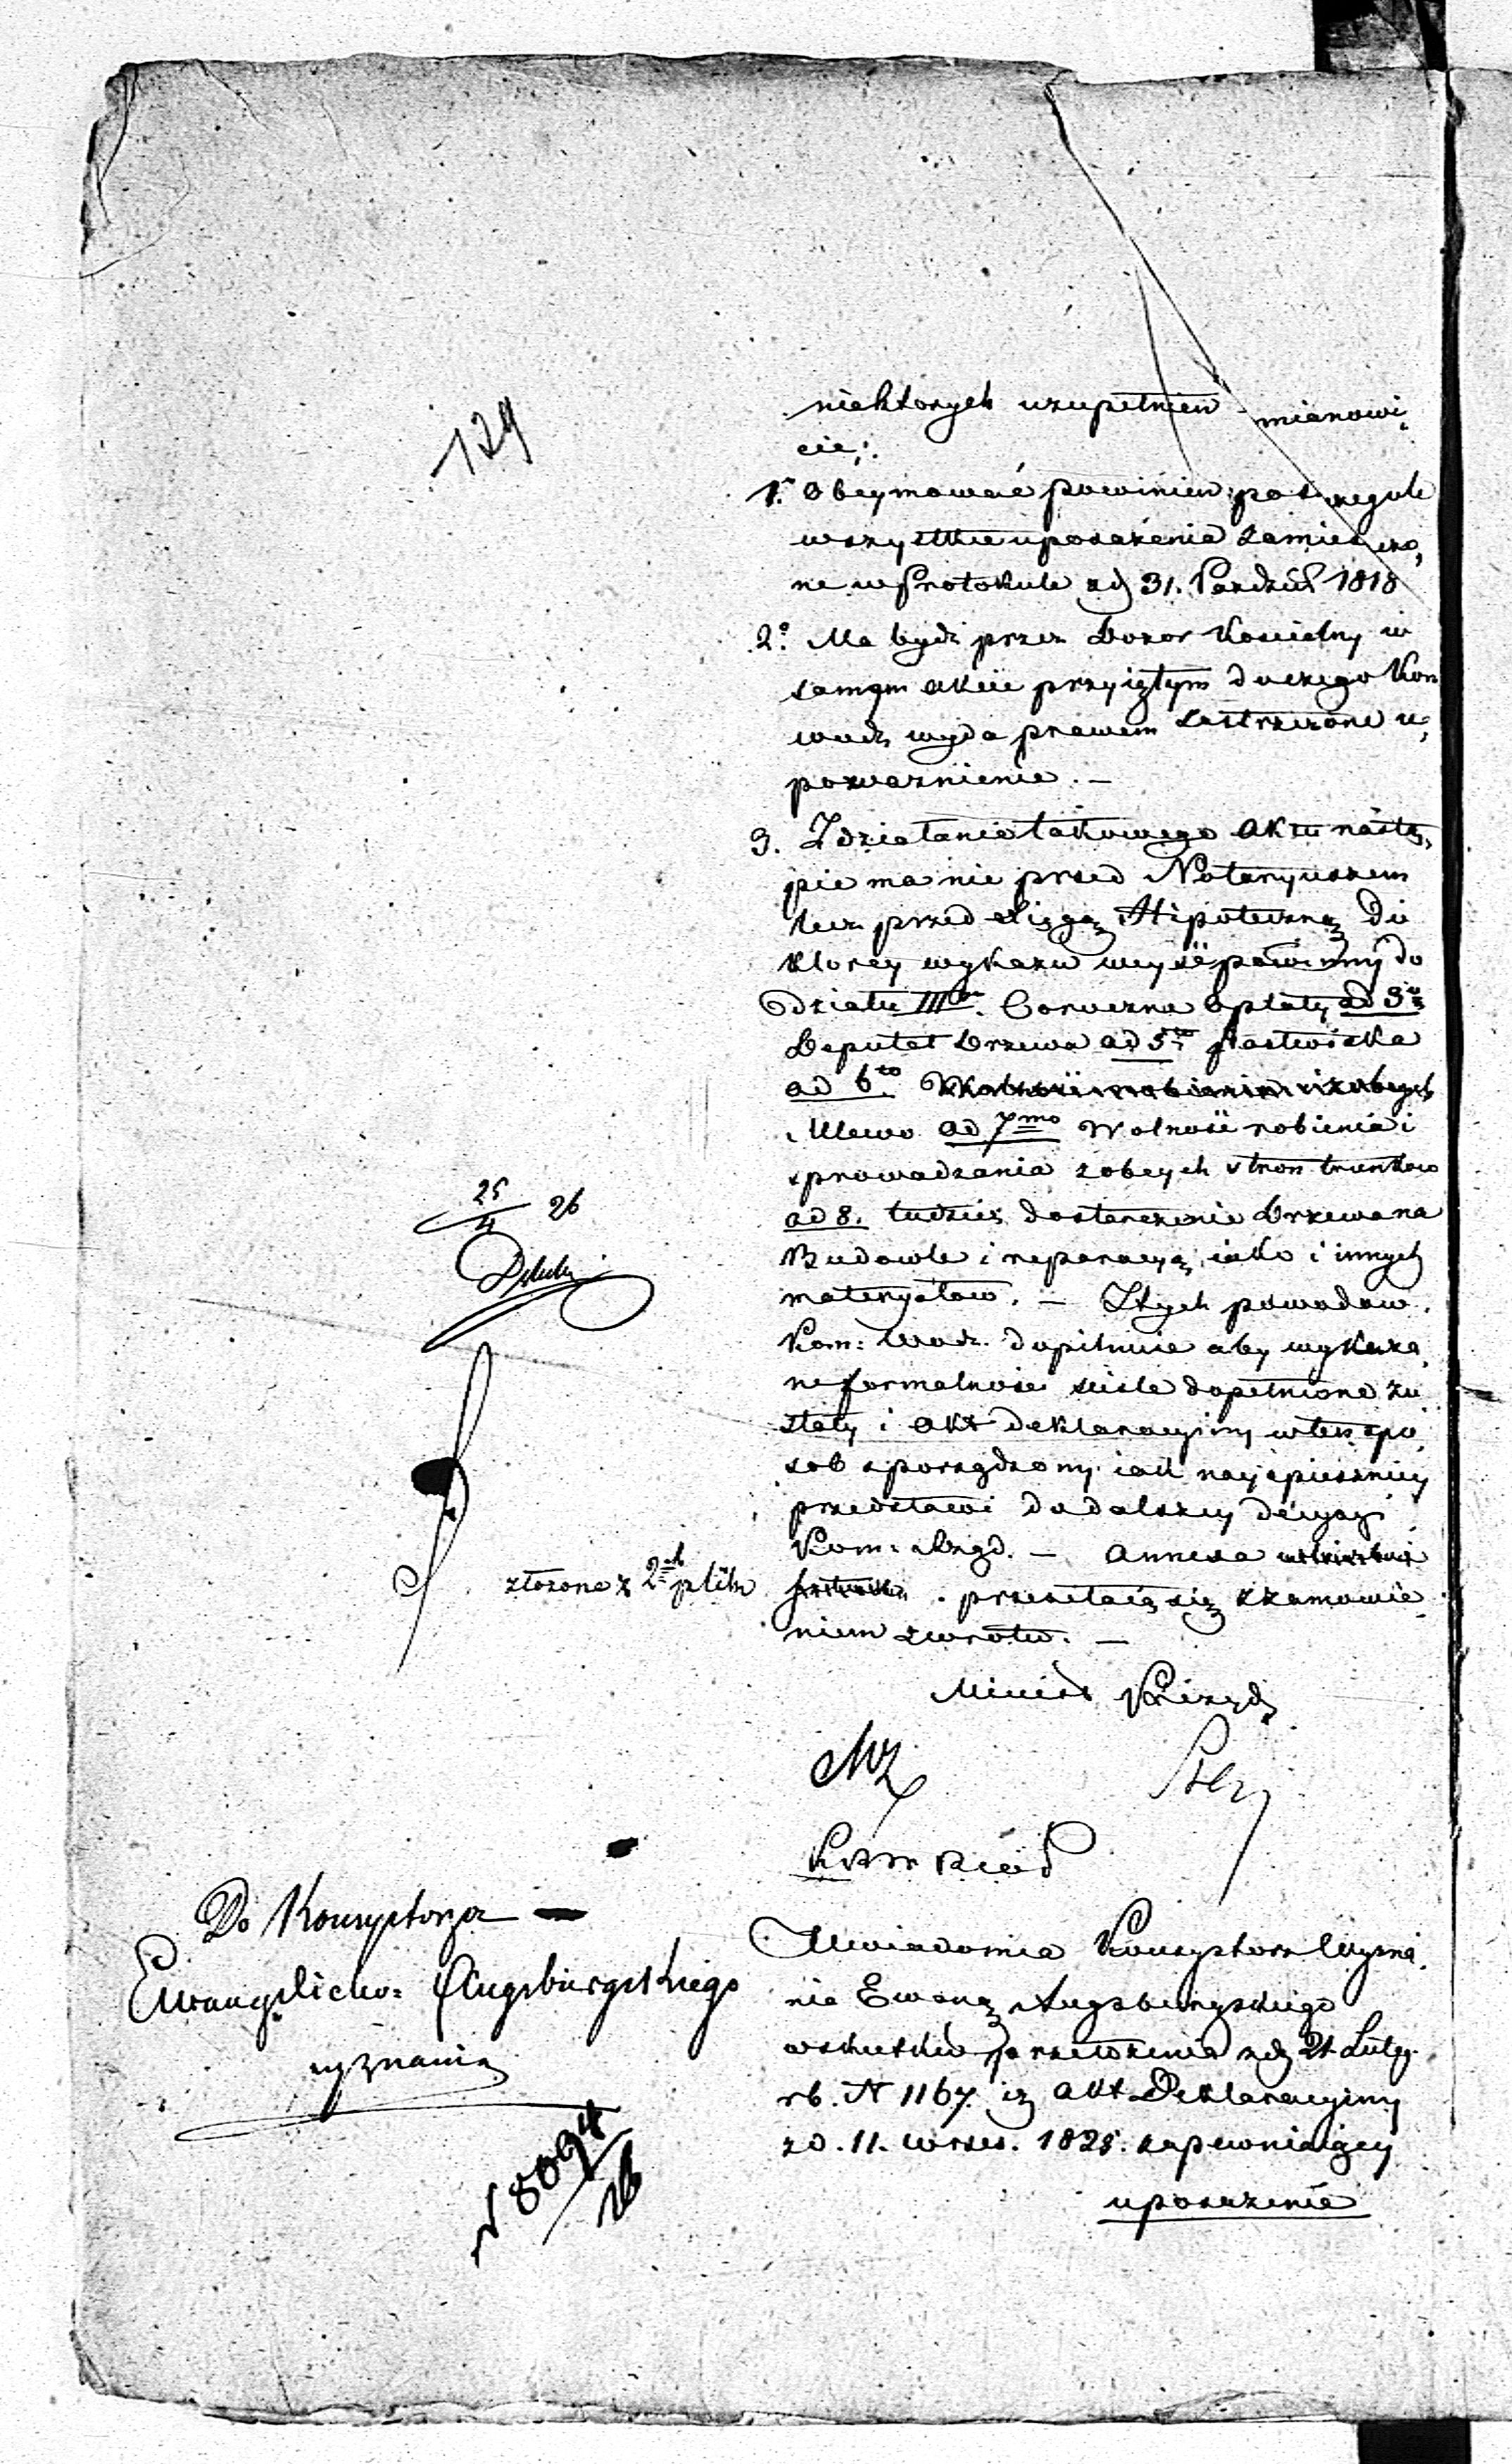 129
niektorych uzupełnień mianowi,
cie:
1° Obeymować powinien poszczegule
wszystkie uposażenia zamieszczo,
ne w Protokule zd 31. Pazdzier 1818
2° Ma bydź przez Dozor Koscielny w
samym akcie przyiętym do czego Kom
wodz wyda prawem zastrzeżone u,
poważnienie. —
3. Zdziałanie takowego Aktu nastą,
pić ma nie przed Notaryuszem
lecz przed Xięgą Hipoteczną do
ktorey wykazu weyść powinny do
działu III Coroczna Opłaty ad 3
Deputat Drzewa ad 5to Pastwiska
ad 6to
Mlewo ad 7mo Wolność robienia i
sprowadzania z obcych stron trunkow
ad 8. tudzież dostarczenie Drzewa na
Budowle i reparacyą, iako i innych
materyałow. — Z tych powodow
Kom: Wodz. dopilnuie aby wykaza,
ne formalności ściśle dopełnione zo
stały i Akt Deklaracyiny w ten spo
sob sporządzony iak nayspieszniey
przedstawi do dalszey decyzyi
Kom: Rząd. — Annexa
złożone z 2ch plik przesyłaią się z zamowie
niem zwrotu. —
25/4 26
Minist Prezyd
Do Konsystorza
Ewangelicko= Augsburgskiego
wyznania
N 8094/26
Uwiadomia Konsystorz Wyzna
nia Ewang Augsburgskiego
w skutku przełożenia zd 21 Lutego
rb. N 1167 iż Akt Deklaracyiny
zd. 11. Wrześ. 1825. zapewniaiący
uposażenie